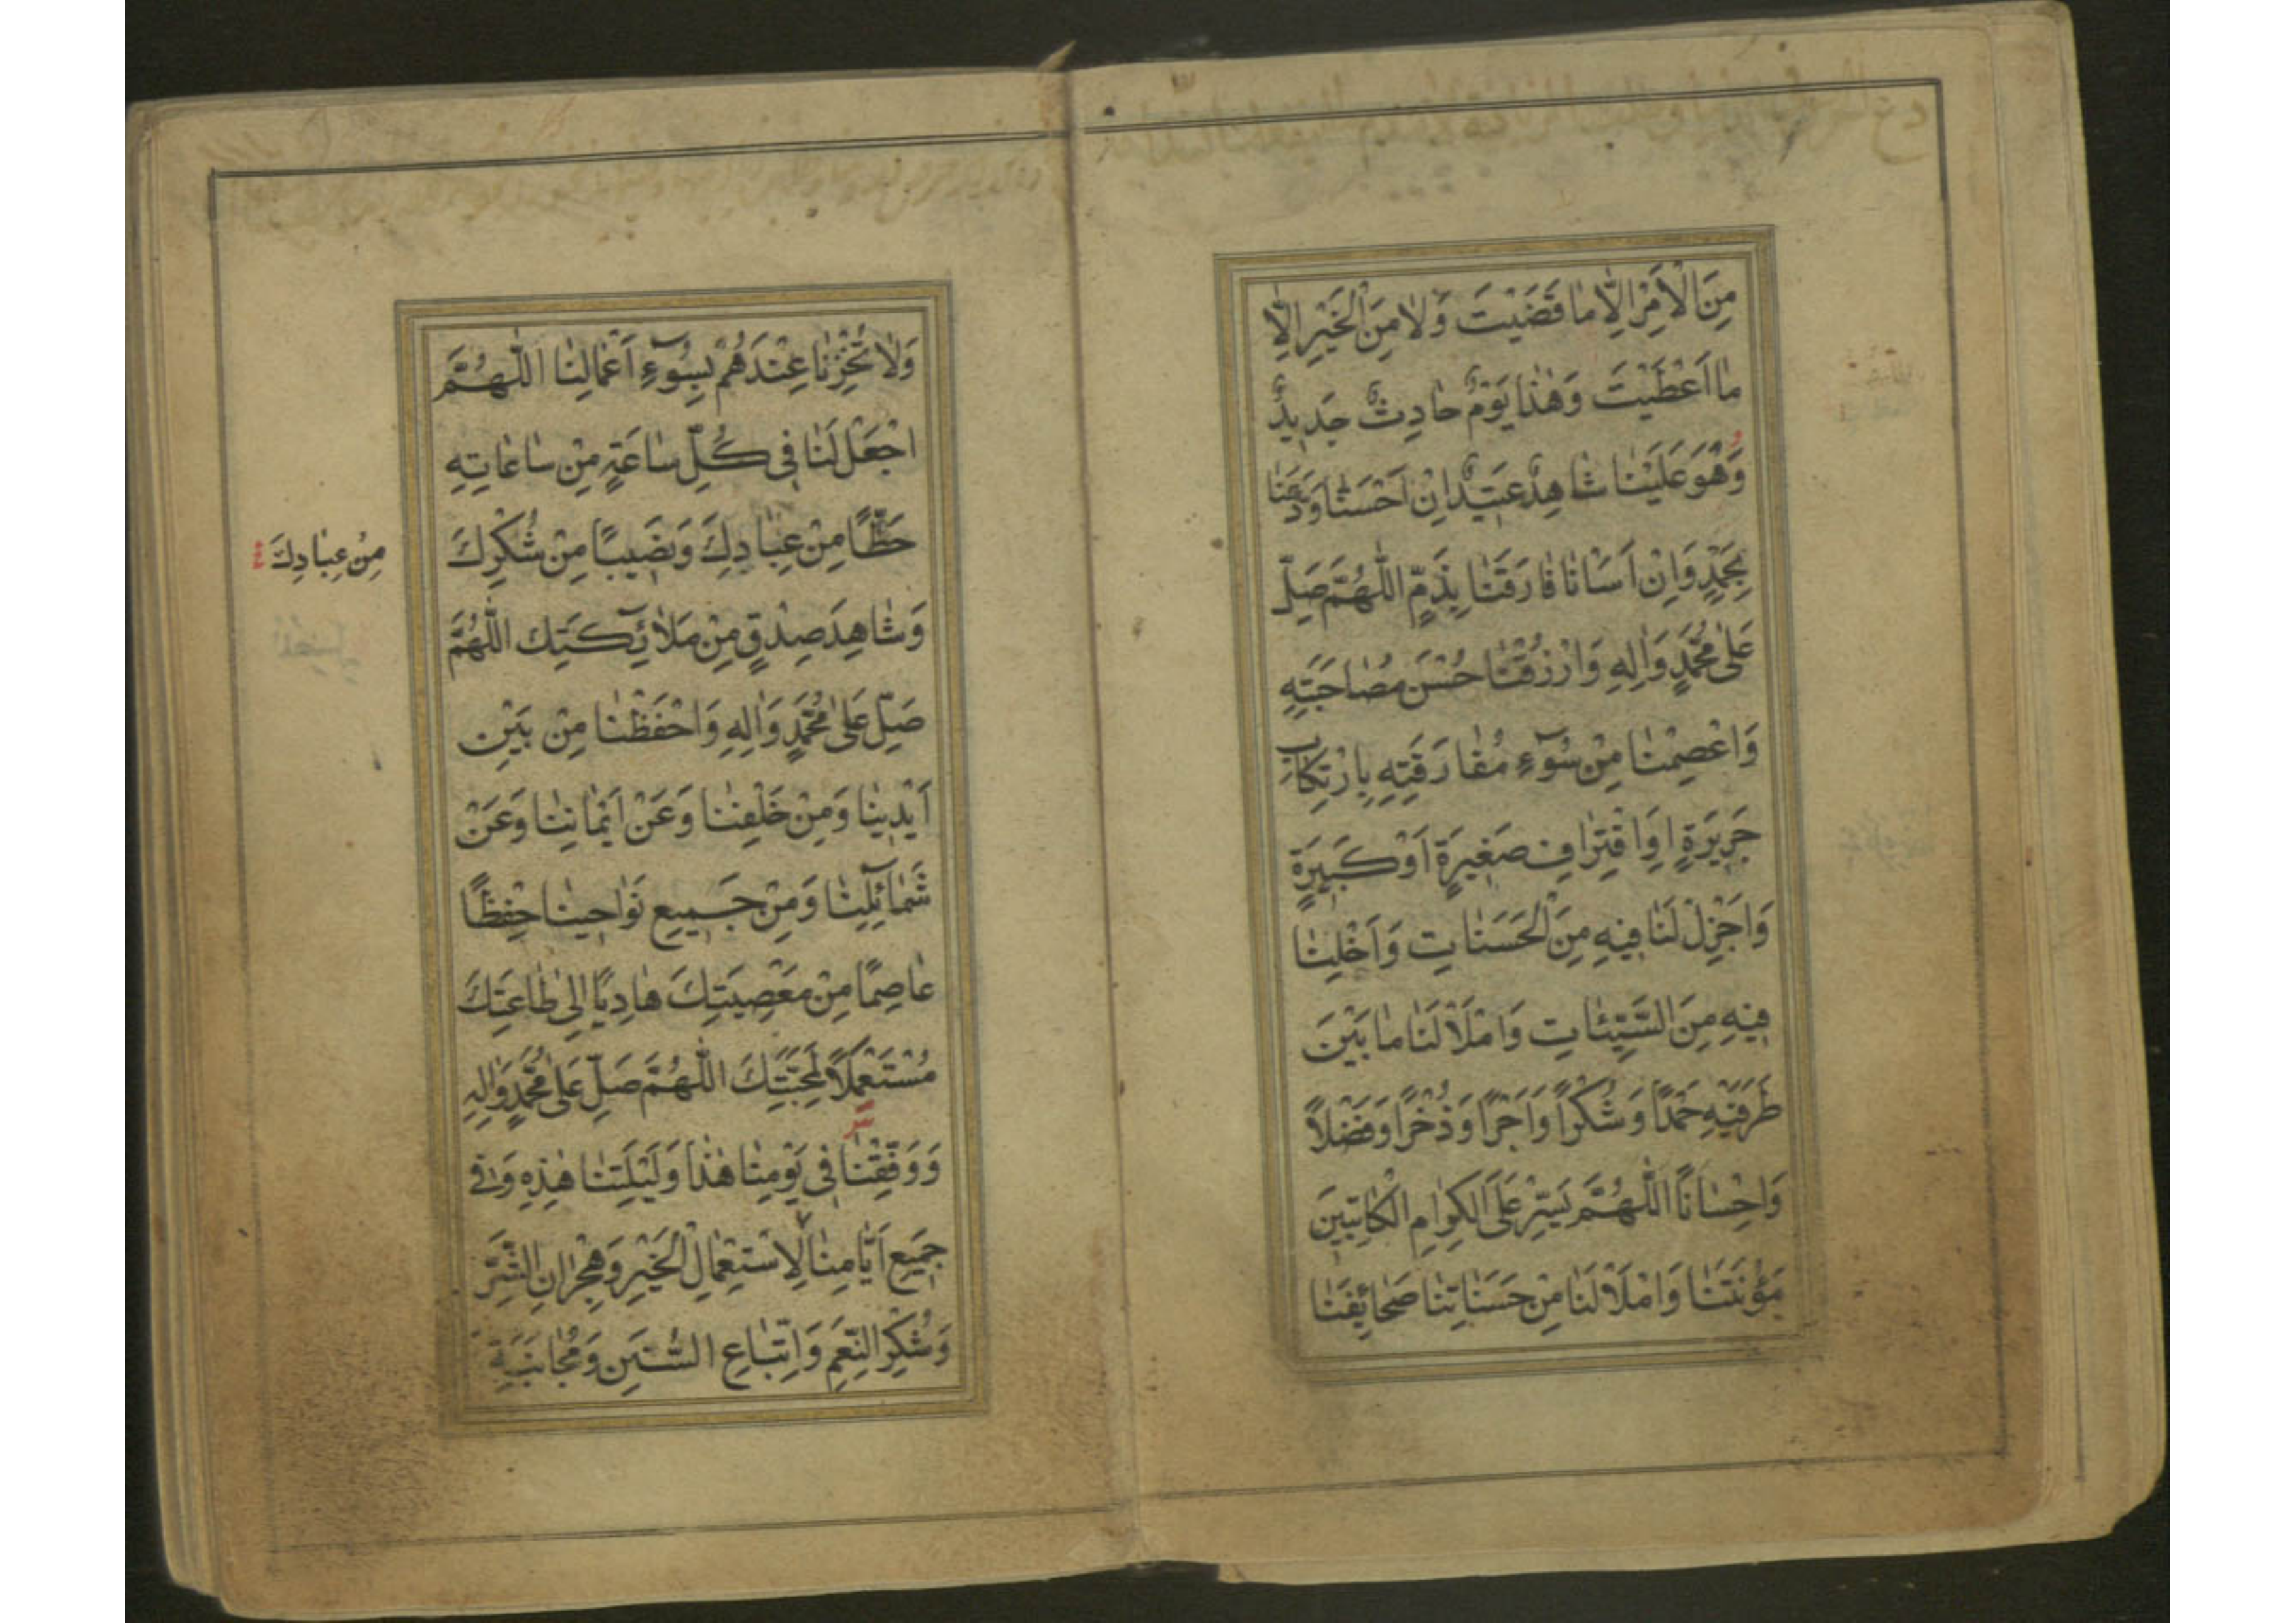 مِنَ الْاَمْرِ اِلّٰا مٰا قَضَيْتَ وَلٰا مِنَ الْخَيْرِ اِلّٰا
مٰا اَعْطَيْتَ وَهٰذٰا يَوْمٌ حٰادِثٌ جَدِيدٌ
وَهُوَ عَلَيْنٰا شٰاهِدٌ عَتِيدٌ اِنْ اَحْسَنّٰا وَدَّعَنٰا
بِحَمْدٍ وَاِنْ اَسَاْنٰا فٰارَقَنٰا بِذَمٍّ اَللّٰهُمَّ صَلِّ
عَلىٰ مُحَمَّدٍ وَاٰلِهِ وَارْزُقْنٰا حُسْنَ مُصٰاحَبَتِهِ
وَاعْصِمْنٰا مِنْ سُوٓءِ مُفٰارَقَتِهِ بِارْتِكٰابِ
جَرِيرَةٍ اَوِ اقْتِرٰافِ صَغِيرَةٍ اَوْ كَبِيرَةٍ
وَاَجْزِلْ لَنٰا فِيهِ مِنَ الْحَسَنٰاتِ وَاَخْلِنٰا
فِيهِ مِنَ السَّيِّئٰاتِ وَامْلَاْ لَنٰا مٰا بَيْنَ
طَرَفَيْهِ حَمْدًا وَشُكْرًا وَاَجْرًا وَذُخْرًا وَفَضْلًا
وَاِحْسٰانًا اَللّٰهُمَّ يَسِّرْ عَلَى الْكِرٰامِ الْكٰاتِبِينَ
مَؤُنَتَنٰا وَامْلَاْ لَنٰا مِنْ حَسَنٰاتِنٰا صَحٰائِفَنٰا
وَلٰا تُخْزِنٰا عِنْدَهُمْ بِسُوٓءِ اَعْمٰالِنٰا اَللّٰهُمَّ
اجْعَلْ لَنٰا فِى كُلِّ سٰاعَةٍ مِنْ سٰاعٰاتِهِ
حَظًّا مِنْ عِبٰادِكَ وَنَصِيبًا مِنْ شُكْرِكَ
مِنْ عِبٰادِكَ
وَشٰاهِدَ صِدْقٍ مِنْ مَلٰٓائِكَتِكَ اَللّٰهُمَّ
صَلِّ عَلىٰ مُحَمَّدٍ وَاٰلِهِ وَاحْفَظْنٰا مِنْ بَيْنِ
اَيْدِينٰا وَمِنْ خَلْفِنٰا وَعَنْ اَيْمٰانِنٰا وَعَنْ
شَمٰٓائِلِنٰا وَمِنْ جَمِيعِ نَوٰاحِينٰا حِفْظًا
عٰاصِمًا مِنْ مَعْصِيَتِكَ هٰادِيًا اِلىٰ طٰاعَتِكَ
مُسْتَعْمِلًا لِمَحَبَّتِكَ اَللّٰهُمَّ صَلِّ عَلىٰ مُحَمَّدٍ وَاٰلِهِ
وَوَفِّقْنٰا فِى يَوْمِنٰا هٰذٰا وَلَيْلَتِنٰا هٰذِهِ وَفِى
جَمِيعِ اَيّٰامِنٰا لِاسْتِعْمٰالِ الْخَيْرِ وَهِجْرٰانِ الشَّرِّ
وَشُكْرِ النِّعَمِ وَاتِّبٰاعِ السُّنَنِ وَمُجٰانَبَةِ